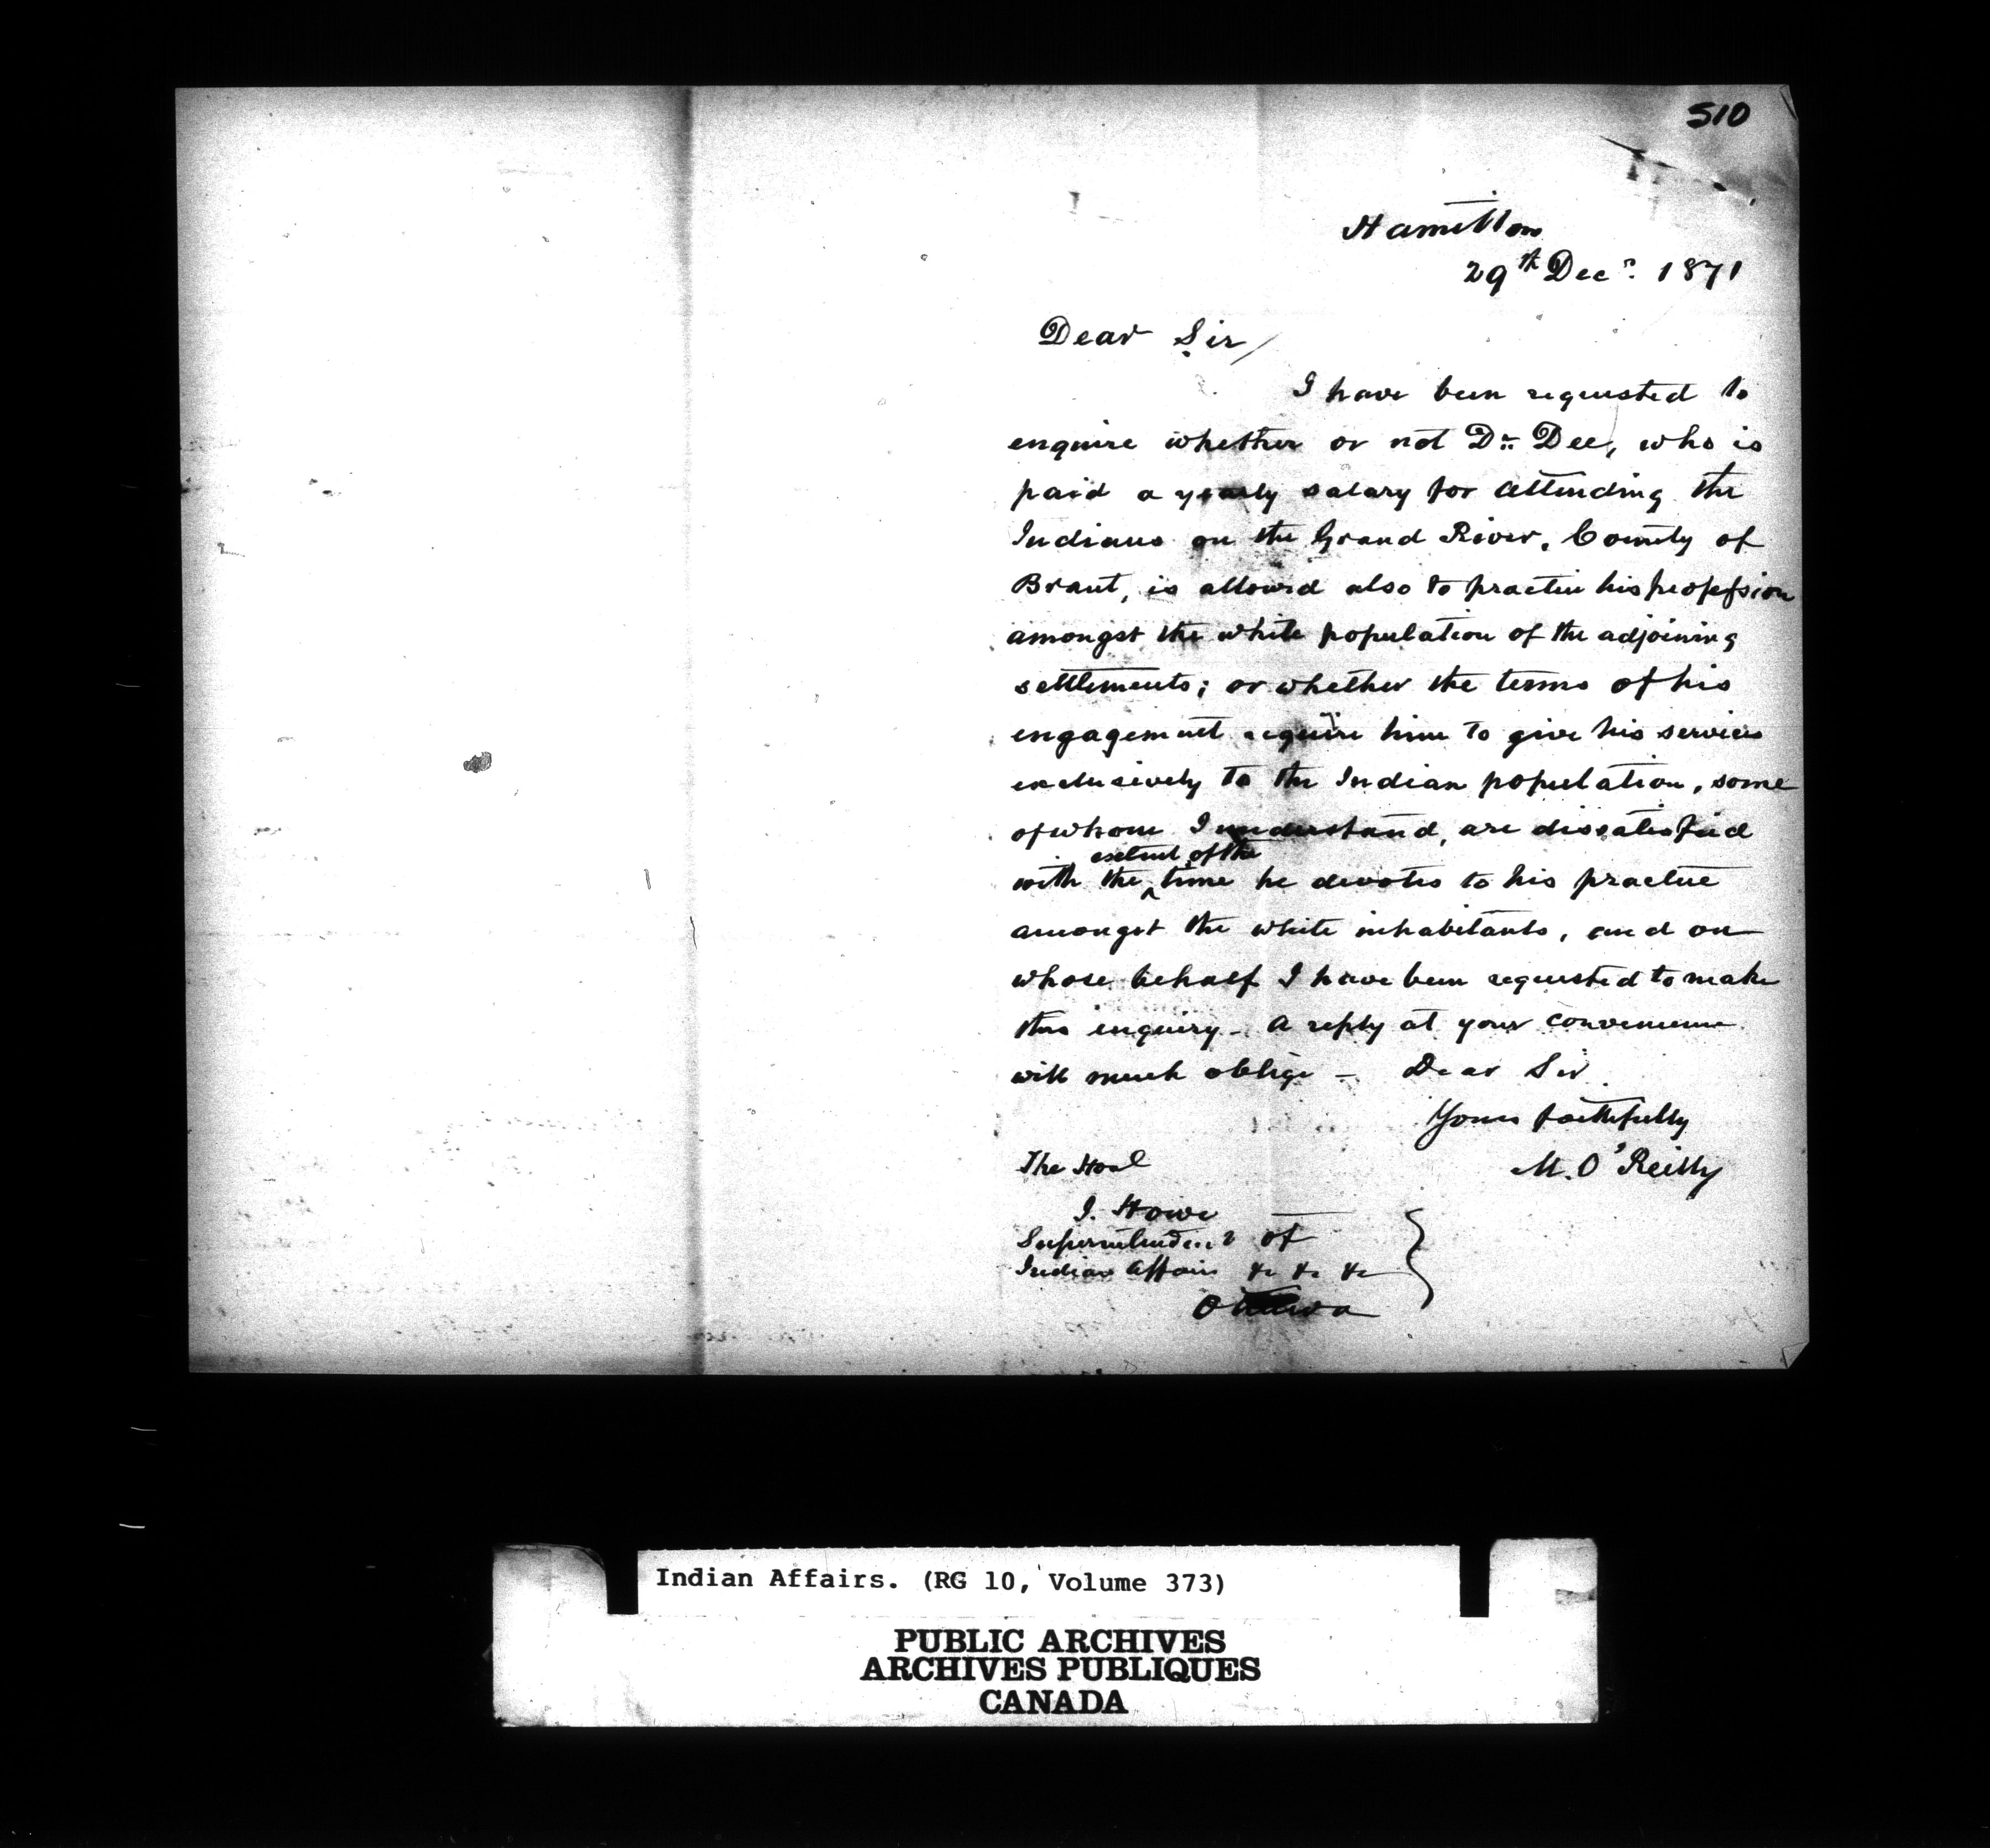 510
Hamilton
29th Decr. 1871
Dear Sir/
I have been requested to
enquire whether or not Dr. Dee, who is
paid a yearly salary for attending the
Indians on the Grand River, County of
Brant, is allowed also to practice his profession
amongst the white population of the adjoining
settlements; or whether the terms of his
engagement require him to give his services
exclusively to the Indian population, some
of whom I understand, are dissatisfied
extent of the
with the ^ time he devotes to his practice
amongst the white inhabitants, and on
whose behalf I have been requested to make
this enquiry - A reply at your convenience
will much oblige - Dear Sir
Yours faithfully
M. O'Reilly
The Honl
J. Howe
Superintendent of
Indian Affairs &c &c &c
Ottawa
Indian Affairs. (RG 10, Volume 373)
PUBLIC ARCHIVES
ARCHIVES PUBLIQUES
CANADA